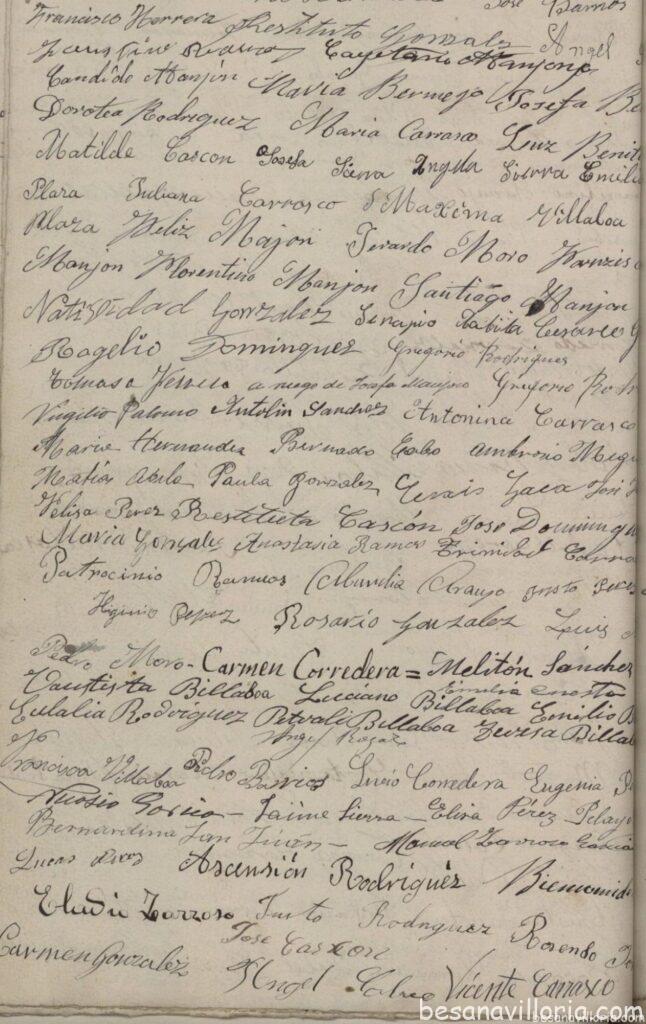 Jose Ramos
Francisco Herrera Restituto Gonzalz Angel
Faustino Ramos Cayetano Manjong
Candido Manjón Maria Bermejo Josefa Be
Dorotea Rodriguez Maria Carrasco Luz Benit
Matilde Cascon Josefa Sierra Angela Sierra Emili
Plaza Juliana Carrasco Maxima Villaboa
Plaza Feliz Majon Jerardo Moro Franzis
Manjon Florentino Manjon Santiago Manjon
Natividad Gonzalez Serapio Cesareo G
Rogelio Dominguez Gregorio Rodrigues
Tomasa a ruego de Josefa Manjon Gregorio Rodr
Virgilio Palomo Antolin Sanchez Antonina Carrasco
Maria Hernandez Bernardo Calvo Ambrosio Migu
Matias Paula Gonzalez Jose
Felisa Perez Restituta Cascón Jose Domingu
Maria Gonzalez Anastasia Ramos Trinidad Carra
Patrocinio Ramos Claudia Araujo Justo
Higinio Perez Rosario Gonzalez Luis
Pedro Moro - Carmen Corredera = Melitón Sánchez
Emilia
Vautista Billaboa Luciano Billaboa Emilio B
Eulalia Rodriguez Billaboa Teresa Billab
Angel Rosal
Francisca Villaboa Pedro Barrios Lucio Corredera Eugenia P
Nicasio - Jaime Sierra - Elisa Pérez - Pelayo
Bernardina - Manuel Zarroso Garcia
Lucas Perez Ascensión Rodríguez Bienvenido
Eladio Zarroso Justo Rodriguez Rosendo
Jose Cascon
Carmen Gonzalez Angel Calvo Vicente Carrasco
besanavilloria.com
besanavilloria.com